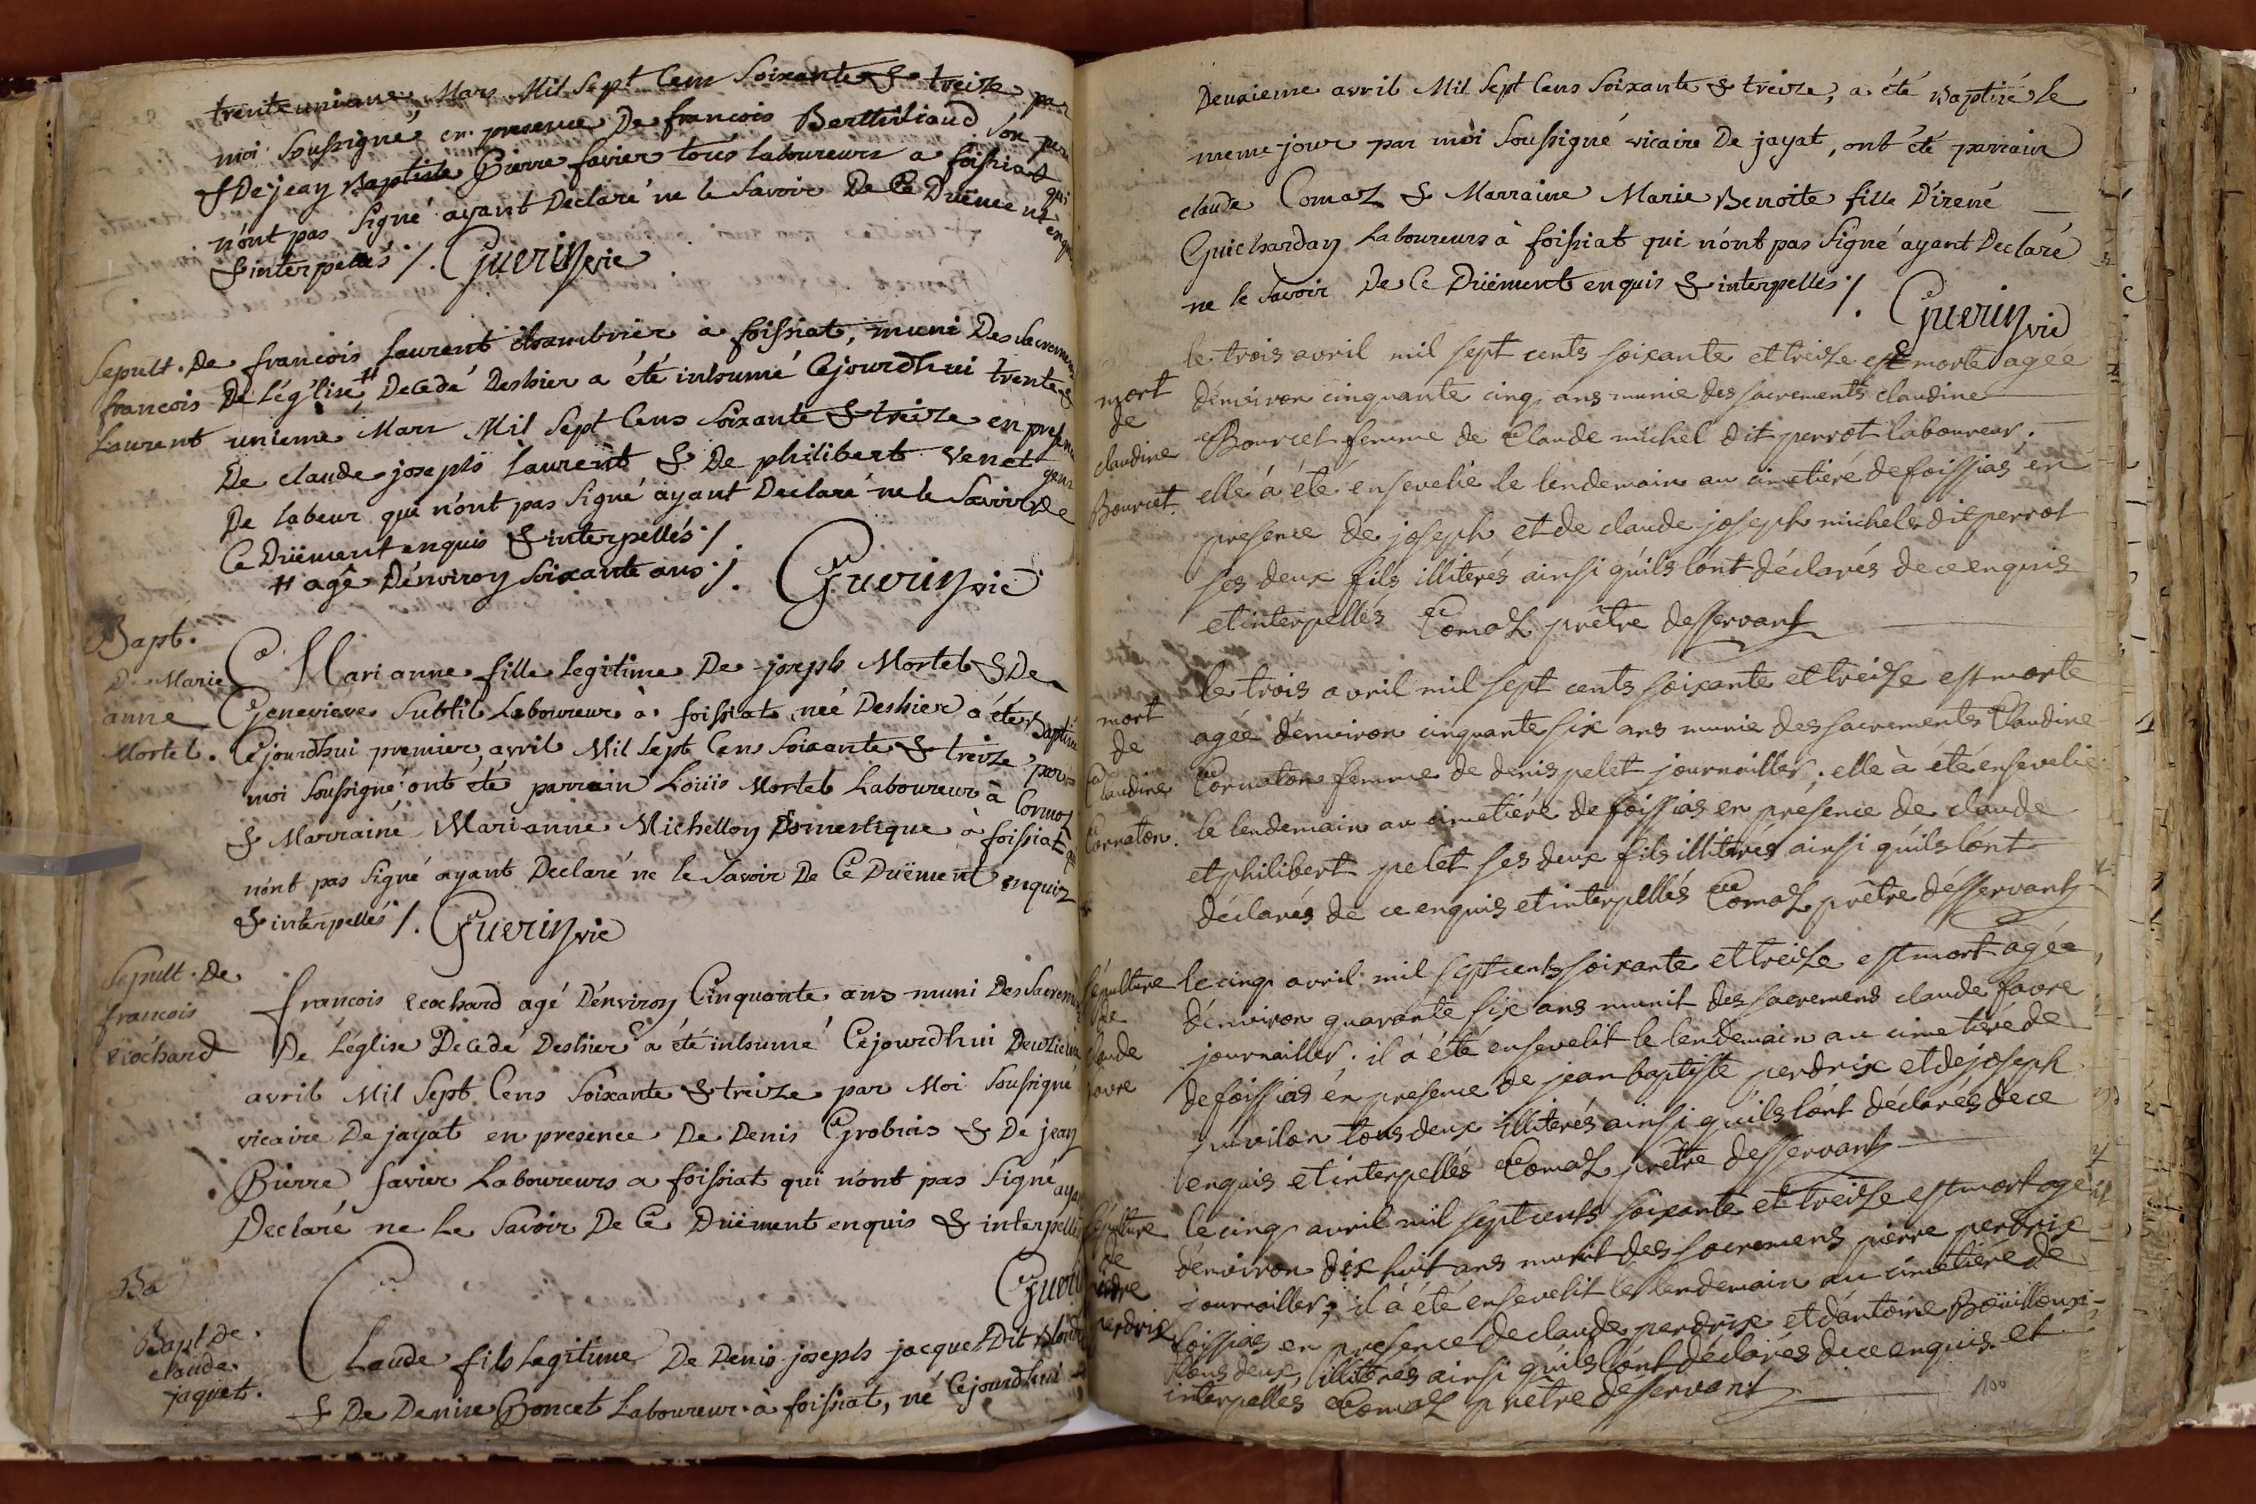 trenteunieme, Mars Mil Sept Cens Soixante & treize par
moi Soussigné, en presence De francois Berthiliaud son pere
& De jean Baptiste Pierre favier tous laboureurs a foissiat qui
n'ont pas Signé ayant Declaré ne le Savoir De Ce Düement enquis
& interpellés /. Guerin vic
Sepult. De
francois
Laurent
francois Laurent chambrier a foissiat, muni Des Sacrements
De l'église, # Decedé Deshier a été inhumé Cejourdhui trente &
unieme Mars Mil Sept Cens Soixante & treize en presence
De claude joseph Laurent & De philibert Venet gens
De labeur qui n'ont pas Signé ayant Declaré ne le Savoir De
Ce Düement enquis & interpellés /.
# agé D'environ Soixante ans /. Guerin vic
Bapt.
De Marie
anne
Mortel.
Marianne fille legitime De joseph Mortel & De
Genevieve Subtil Laboureur à foissiat, née Deshier a été Baptisée
Cejourdhui premier, avril Mil Sept Cens Soixante & treize, par
moi Soussigné ont été parrain Loüis Mortel Laboureur à Cormoz
& Marraine Marianne Michellon Domestique à foissiat qui
n'ont pas Signé ayant Declaré ne le Savoir De Ce Düement enquis
& interpellés /. Guerin vic
Sepult. De
francois
Cochard
francois Cochard agé D'environ Cinquante ans muni Des Sacremens
De L'église Decedé Deshier a été inhumé Cejourdhui Deuxieme
avril Mil Sept Cens Soixante & treize par Moi Soussigné
vicaire De jayat en presence De Denis Grobois & De jean
Pierre favier Laboureurs a foissiat qui n'ont pas Signé ayant
Declaré ne Le Savoir De Ce Düement enquis & interpellés
Guerin
Ba
Bapt. De
claude
jaquet.
Claude fils Legitime De Denis joseph jacquet Dit
& De Denise Poncet Laboureur à foissiat, né Cejourdhui
Deuxieme avril Mil Sept Cens Soixante & treize, a été Baptizé le
meme jour par moi Soussigné vicaire De jayat, ont été parrain
claude Comaz & Marraine Marie Benoite fille D'irené
Guichardan Laboureurs à foissiat qui n'ont pas Signé ayant Declaré
ne le Savoir De Ce Düement enquis & interpellés /.
Guerin vic
mort
de
claudine
Bourcet.
le trois avril mil sept cents soixante et treize est morte agée
d'environ cinquante cinq ans munie des sacrements claudine
Bourcet femme de Claude michel dit perrot laboureur;
elle à été ensevelie le lendemain au cimetiére de foissias en
presence de joseph et de claude joseph michel dit perrot
ses deux fils illiterés ainsi qu'ils l'ont déclarés de ce enquis
et interpellés Comaz prêtre desservant
mort
de
Claudine
Cornaton.
le trois avril mil sept cents soixante et treize est morte
agée d'environ cinquante six ans munie des sacrements Claudine
Cornaton femme de denis pelet journailler; elle à été ensevelie
le lendemain au cimetiére de foissias en présence de claude
et philibert pelet ses deux fils illiterés ainsi qu'ils l'ont
déclarés de ce enquis et interpellés Comaz prêtre désservant
Sépulture
de
claude
favre
le cinq avril mil sept cents soixante et treize est mort agée
d'environ quarante six ans munit des sacremens claude favre
journailler; il à été ensevelit le lendemain au cimetiére de
de foissias en presence de jean baptiste perdrix et de joseph
tous deux illiterés ainsi qu'ils l'ont déclarés de ce
enquis et interpellés Comaz prêtre desservant
Sépulture
de
pierre
perdrix
le cinq avril mil sept cents soixante et treize est mort agé
d'environ dix huit ans munit des sacremens pierre perdrix
journailler; il à été ensevelit le lendemain au cimetiére de
foissias en presence de claude perdrix et d'antoine Boüilloux
tous deux illiterés ainsi qu'ils l'ont déclarés de ce enquis et
interpelles Comaz prêtre desservant
100